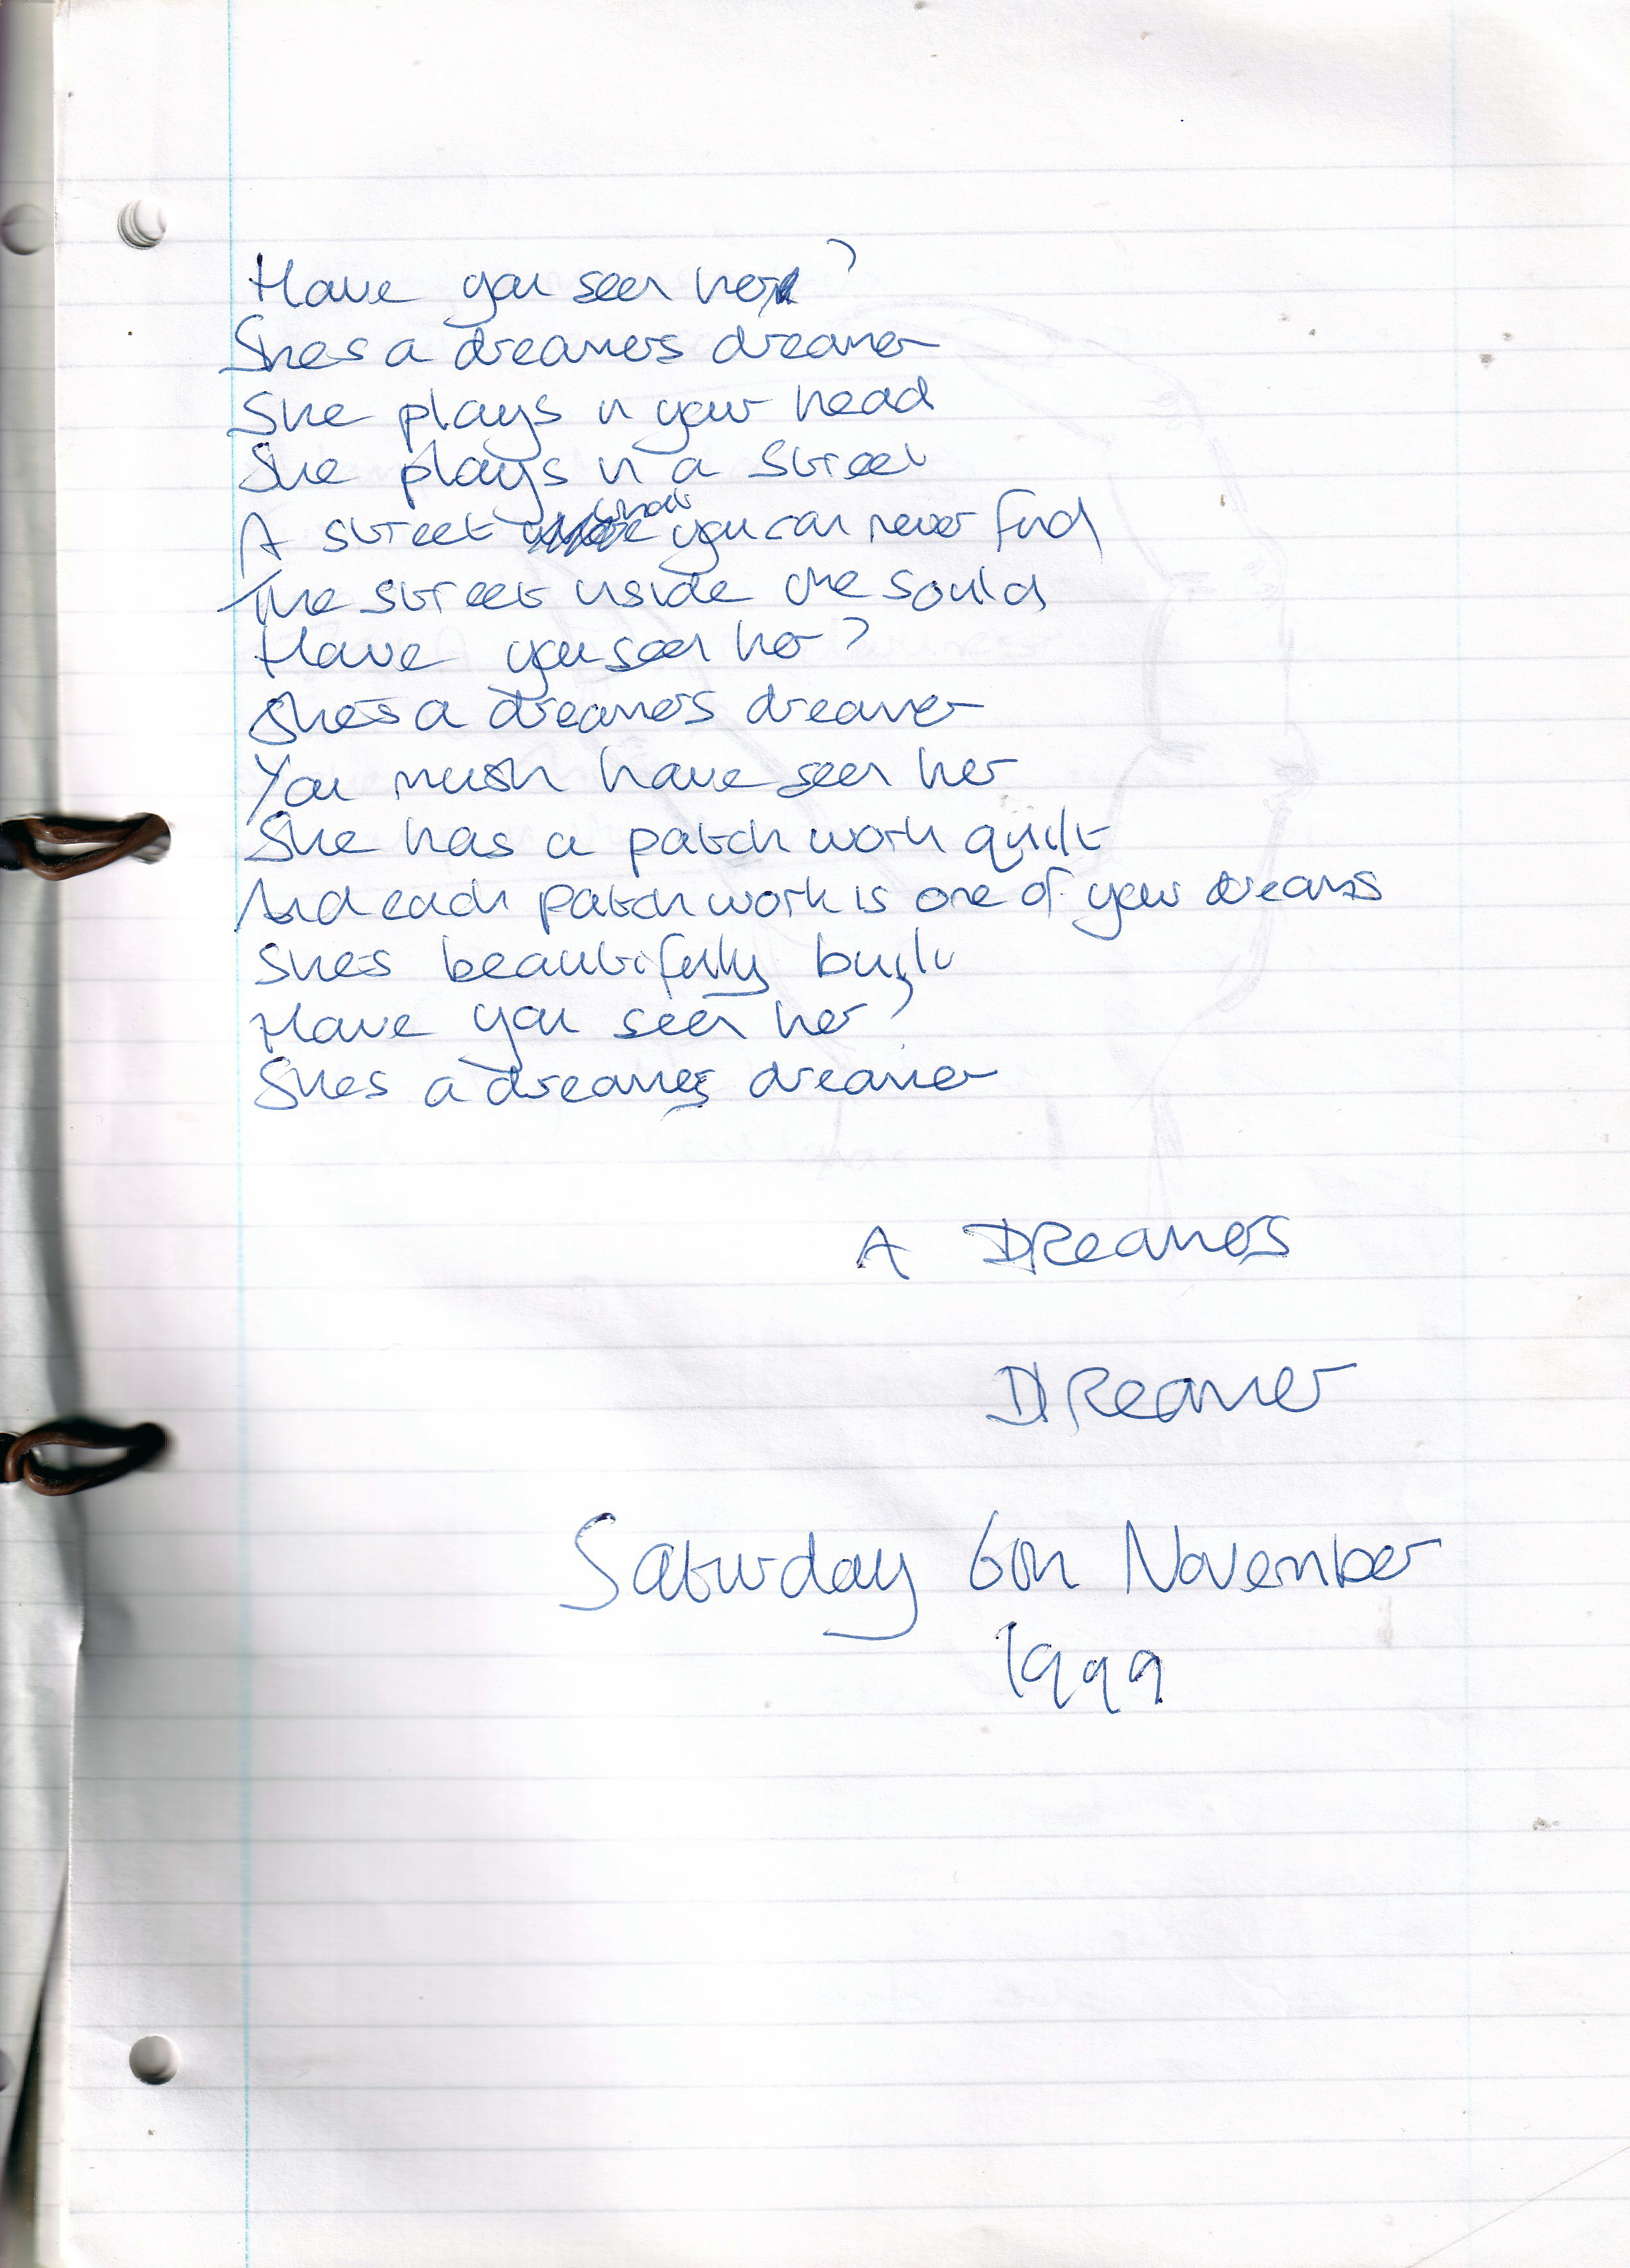 Have you seen her?
Shes a dreamers dreamer
She plays in your head
She plays in a street
A street that you can never find
The street inside the sould
Have you seen her?
Shes a dreamers dreamer
You must have seen her
She has a patch work quilt
And each patch work is one of your dreams
Shes beautifully built
Have you seen her?
Shes a dreamers dreamer
A DReamers
DReamer
Saturday 6th November
1999